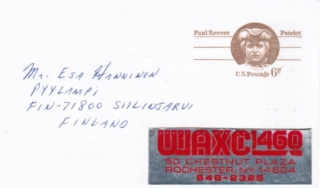 Paul Revere Patriot
U.S. Postage 6¢
Mr. Esa Hanninen
Pyylampi
FIN-71800 Siilinjarvi
Finland
WAXC 1460
50 CHESTNUT PLAZA
ROCHESTER, NY 14604
546-2325